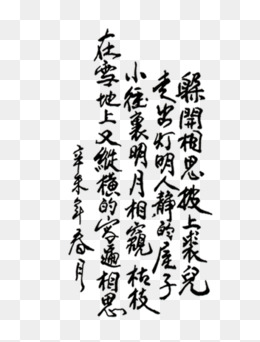 躲開相思披上裘兒
走出灯明人静的屋子
小徑裏明月相窺枯枝
在雪地上又縱橫的寫遍相思
辛未年春月